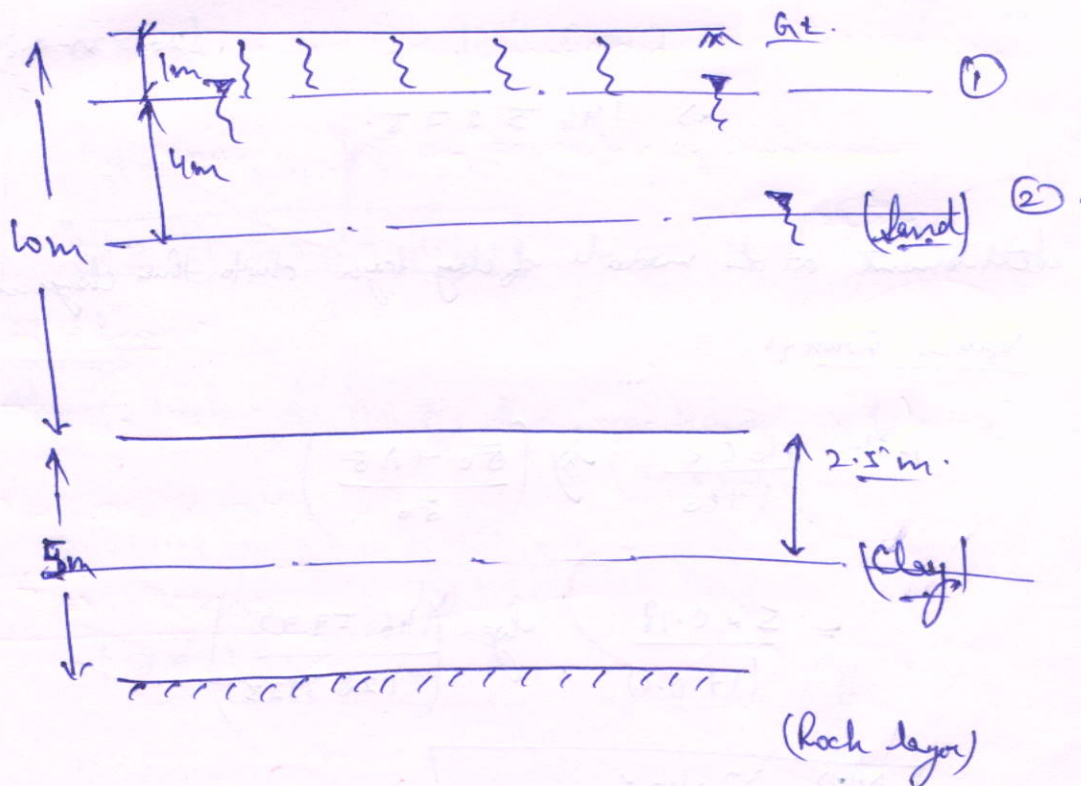 G.L.
1m
①
4m
(Sand) ②
10m
2.5 m.
5m
(Clay)
(Rock layer)